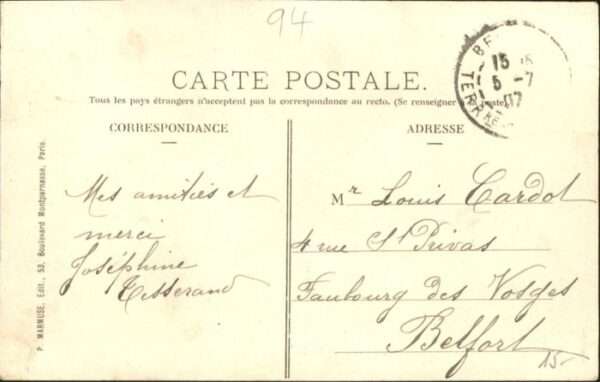 94
CARTE POSTALE.
Tous les pays étrangers n'acceptent pas la correspondance au recto. (Se renseigner
CORRESPONDANCE
ADRESSE
Mes amitiés et
merci
Joséphine
Tisserand
Mr Louis Cardot
4 rue St Privas
Faubourg des Vosges
Belfort
15-
P. MARMUSE, Edit., 53, Boulevard Montparnasse, Paris.
15
5 -7
07
TERR